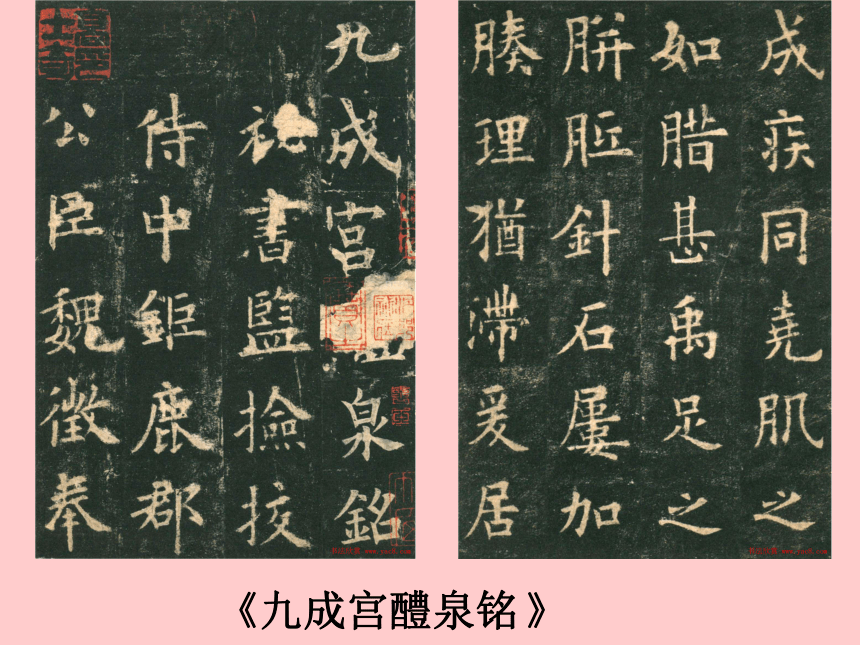 九成宮泉銘
祕書監撿挍
侍中鉅鹿郡
公臣魏徵奉
成疾同堯肌之
如腊甚禹足之
胼胝針石屢加
腠理猶滯爰居
《九成宫醴泉铭》